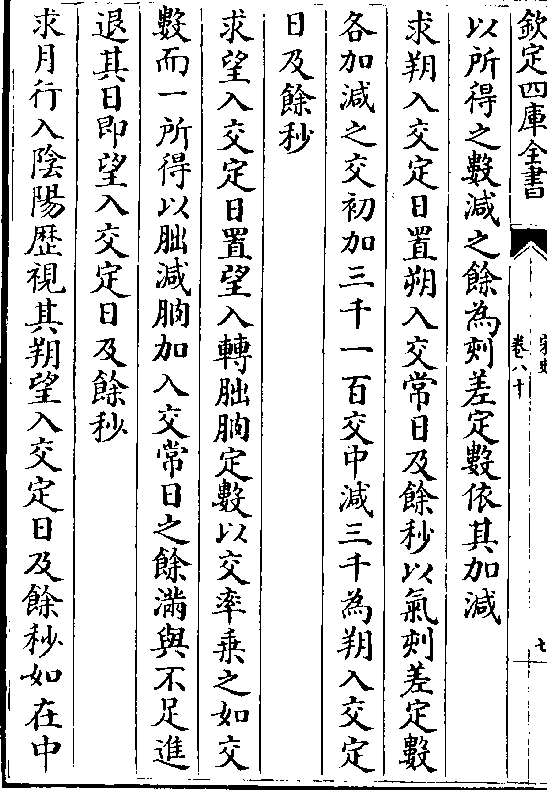 欽定四庫全書
宋史
卷八十
七
以所得之數減之餘為刻差定數依其加減
求朔入交定日置朔入交常日及餘秒以氣刻差定數
各加減之交初加三千一百交中減三千為朔入交定
日及餘秒
求望入交定日置望入轉朏朒定數以交率乗之如交
數而一所得以朏減朒加入交常日之餘滿與不足進
退其日即望入交定日及餘秒
求月行入陰陽歴視其朔望入交定日及餘秒如在中